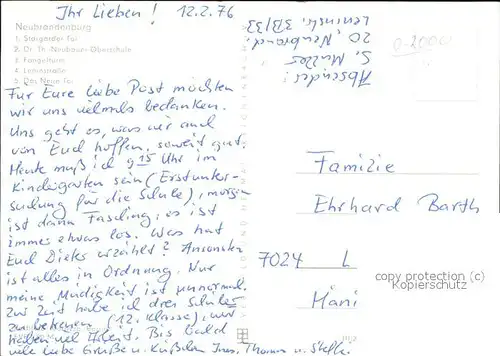 Ihr Lieben! 12.2.76
Neubrandenburg
1. Stargarder Tor
2. Dr. Th. Neubauer-Oberschule
3. Fangelturm
4. Leninstraße
5. Das Neue Tor
Für Eure liebe Post möchten
wir uns vielmals bedanken.
Uns geht es, was wir auch
von Euch hoffen, soweit gut.
Heute muß ich 9 15 Uhr im
Kindergarten sein (Erstunter-
suchung für die Schule), morgen
ist dann Fasching, es ist
immer etwas los. Was hat
Euch Dieter erzählt? Ansonsten
ist alles in Ordnung. Nur
meine Müdigkeit ist unnormal.
Zur Zeit habe ich drei Schüler
zu betreuen (12. Klasse), und
haben viel Arbeit. Bis bald
viele liebe Grüße u. Küßchen Thomas u.
Absender:
S. Müller
20, Neubrand.
Leninstr. 3B/33
Familie
Ehrhard Barth
7024 L
copyright (protection) cc
Kopierschutz